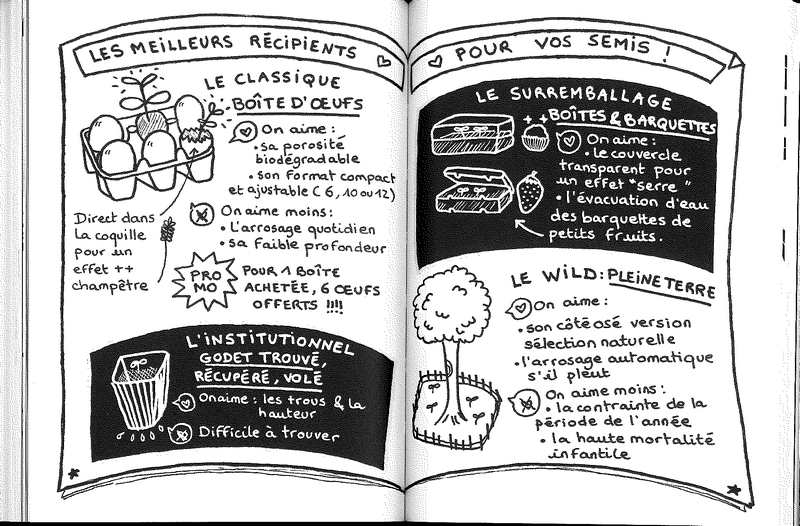 LES MEILLEURS RÉCIPIENTS
LE CLASSIQUE
BOÎTE D'ŒUFS
On aime :
• sa porosité
biodégradable
• son format compact
et ajustable (6, 10 ou 12)
Direct dans
la coquille
pour un
effet ++
champêtre
On aime moins :
• L'arrosage quotidien
• sa faible profondeur
PRO
MO
POUR 1 BOÎTE
ACHETÉE, 6 ŒUFS
OFFERTS !!!!
L'INSTITUTIONNEL
GODET TROUVÉ,
RÉCUPÉRÉ, VOLÉ
On aime : les trous & la
hauteur
Difficile à trouver
POUR VOS SEMIS !
LE SURREMBALLAGE
++ BOÎTES & BARQUETTES
On aime :
• le couvercle
transparent pour
un effet "serre"
• l'évacuation d'eau
des barquettes de
petits fruits.
LE WILD : PLEINE TERRE
On aime :
• son côté osé version
sélection naturelle
• l'arrosage automatique
s'il pleut
On aime moins :
• la contrainte de la
période de l'année
• la haute mortalité
infantile